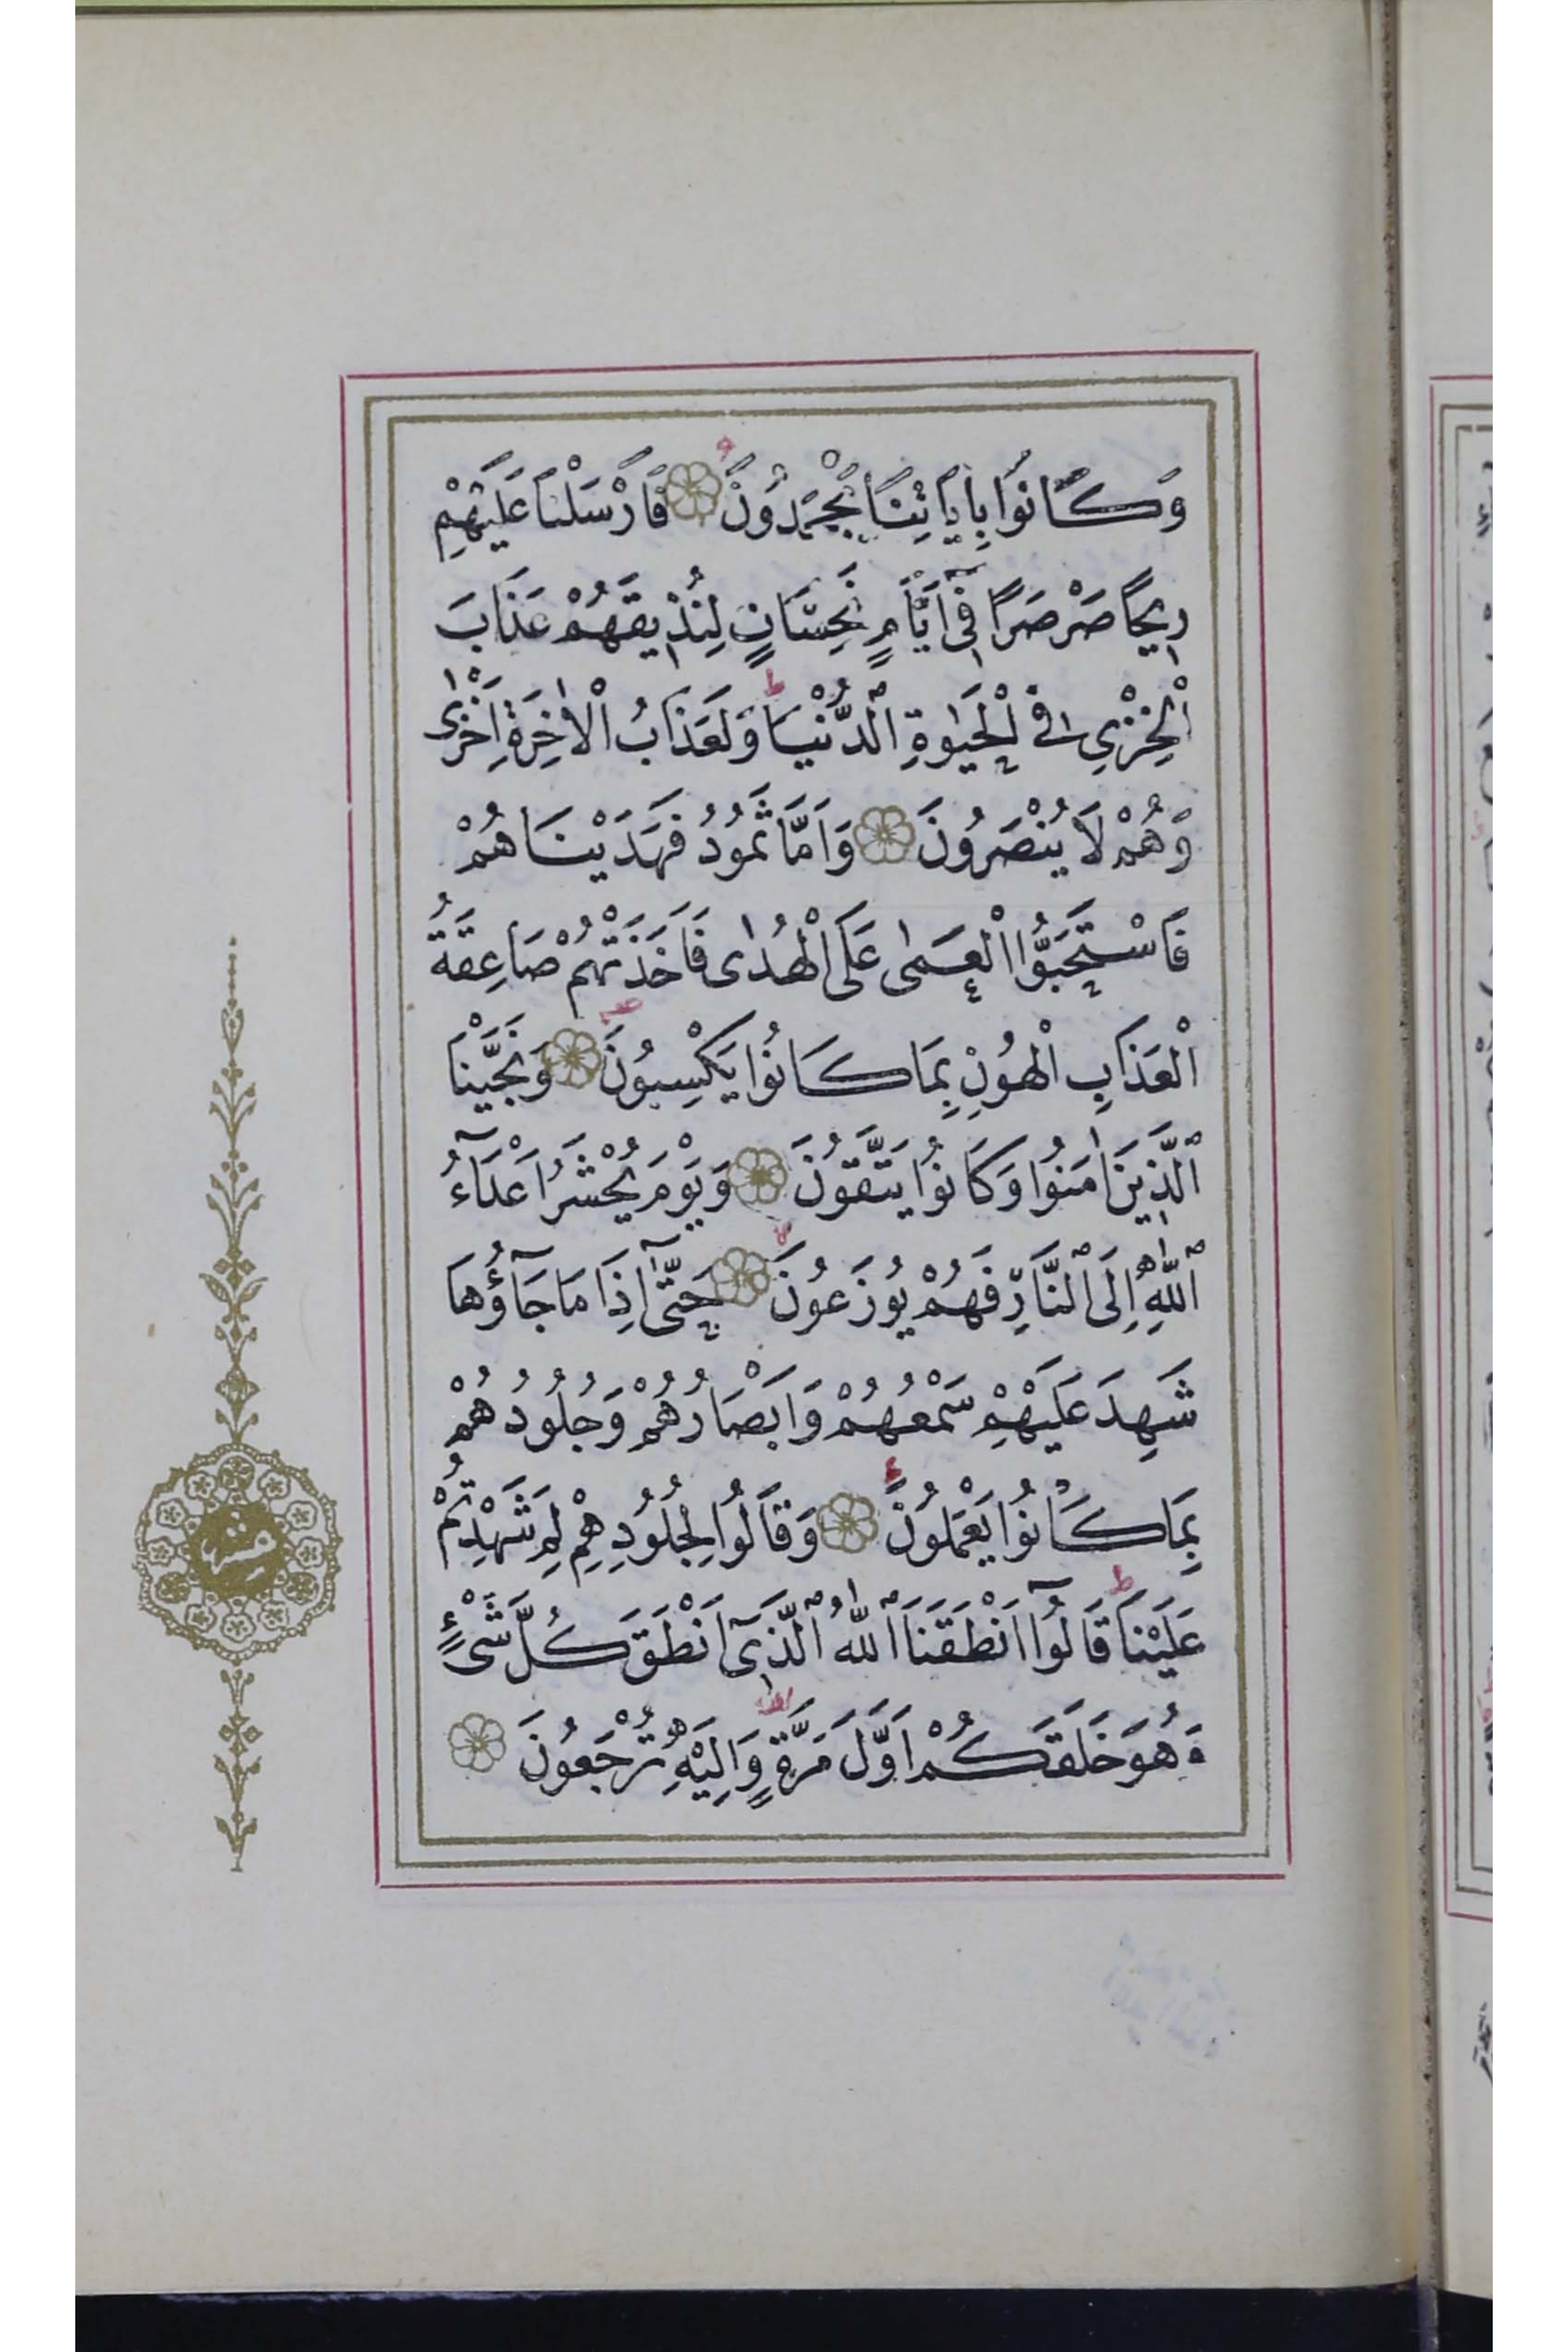 وَكَانُوا بِاٰيَاتِنَا يَجْحَدُونَ فَاَرْسَلْنَا عَلَيْهِمْ
رِيحًا صَرْصَرًا فِىٓ اَيَّامٍ نَحِسَاتٍ لِنُذِيقَهُمْ عَذَابَ
الْخِزْيِ فِى الْحَيٰوةِ الدُّنْيَا وَلَعَذَابُ الْاٰخِرَةِ اَخْزٰى
وَهُمْ لَا يُنْصَرُونَ وَاَمَّا ثَمُودُ فَهَدَيْنَاهُمْ
فَاسْتَحَبُّوا الْعَمٰى عَلَى الْهُدٰى فَاَخَذَتْهُمْ صَاعِقَةُ
الْعَذَابِ الْهُونِ بِمَا كَانُوا يَكْسِبُونَ وَنَجَّيْنَا
الَّذِينَ اٰمَنُوا وَكَانُوا يَتَّقُونَ وَيَوْمَ يُحْشَرُ اَعْدَآءُ
اللّٰهِ اِلَى النَّارِ فَهُمْ يُوزَعُونَ حَتّٰىٓ اِذَا مَا جَآؤُهَا
شَهِدَ عَلَيْهِمْ سَمْعُهُمْ وَاَبْصَارُهُمْ وَجُلُودُهُمْ
بِمَا كَانُوا يَعْمَلُونَ وَقَالُوا لِجُلُودِهِمْ لِمَ شَهِدْتُمْ
عَلَيْنَا قَالُوٓا اَنْطَقَنَا اللّٰهُ الَّذِىٓ اَنْطَقَ كُلَّ شَىْءٍ
وَهُوَ خَلَقَكُمْ اَوَّلَ مَرَّةٍ وَاِلَيْهِ تُرْجَعُونَ